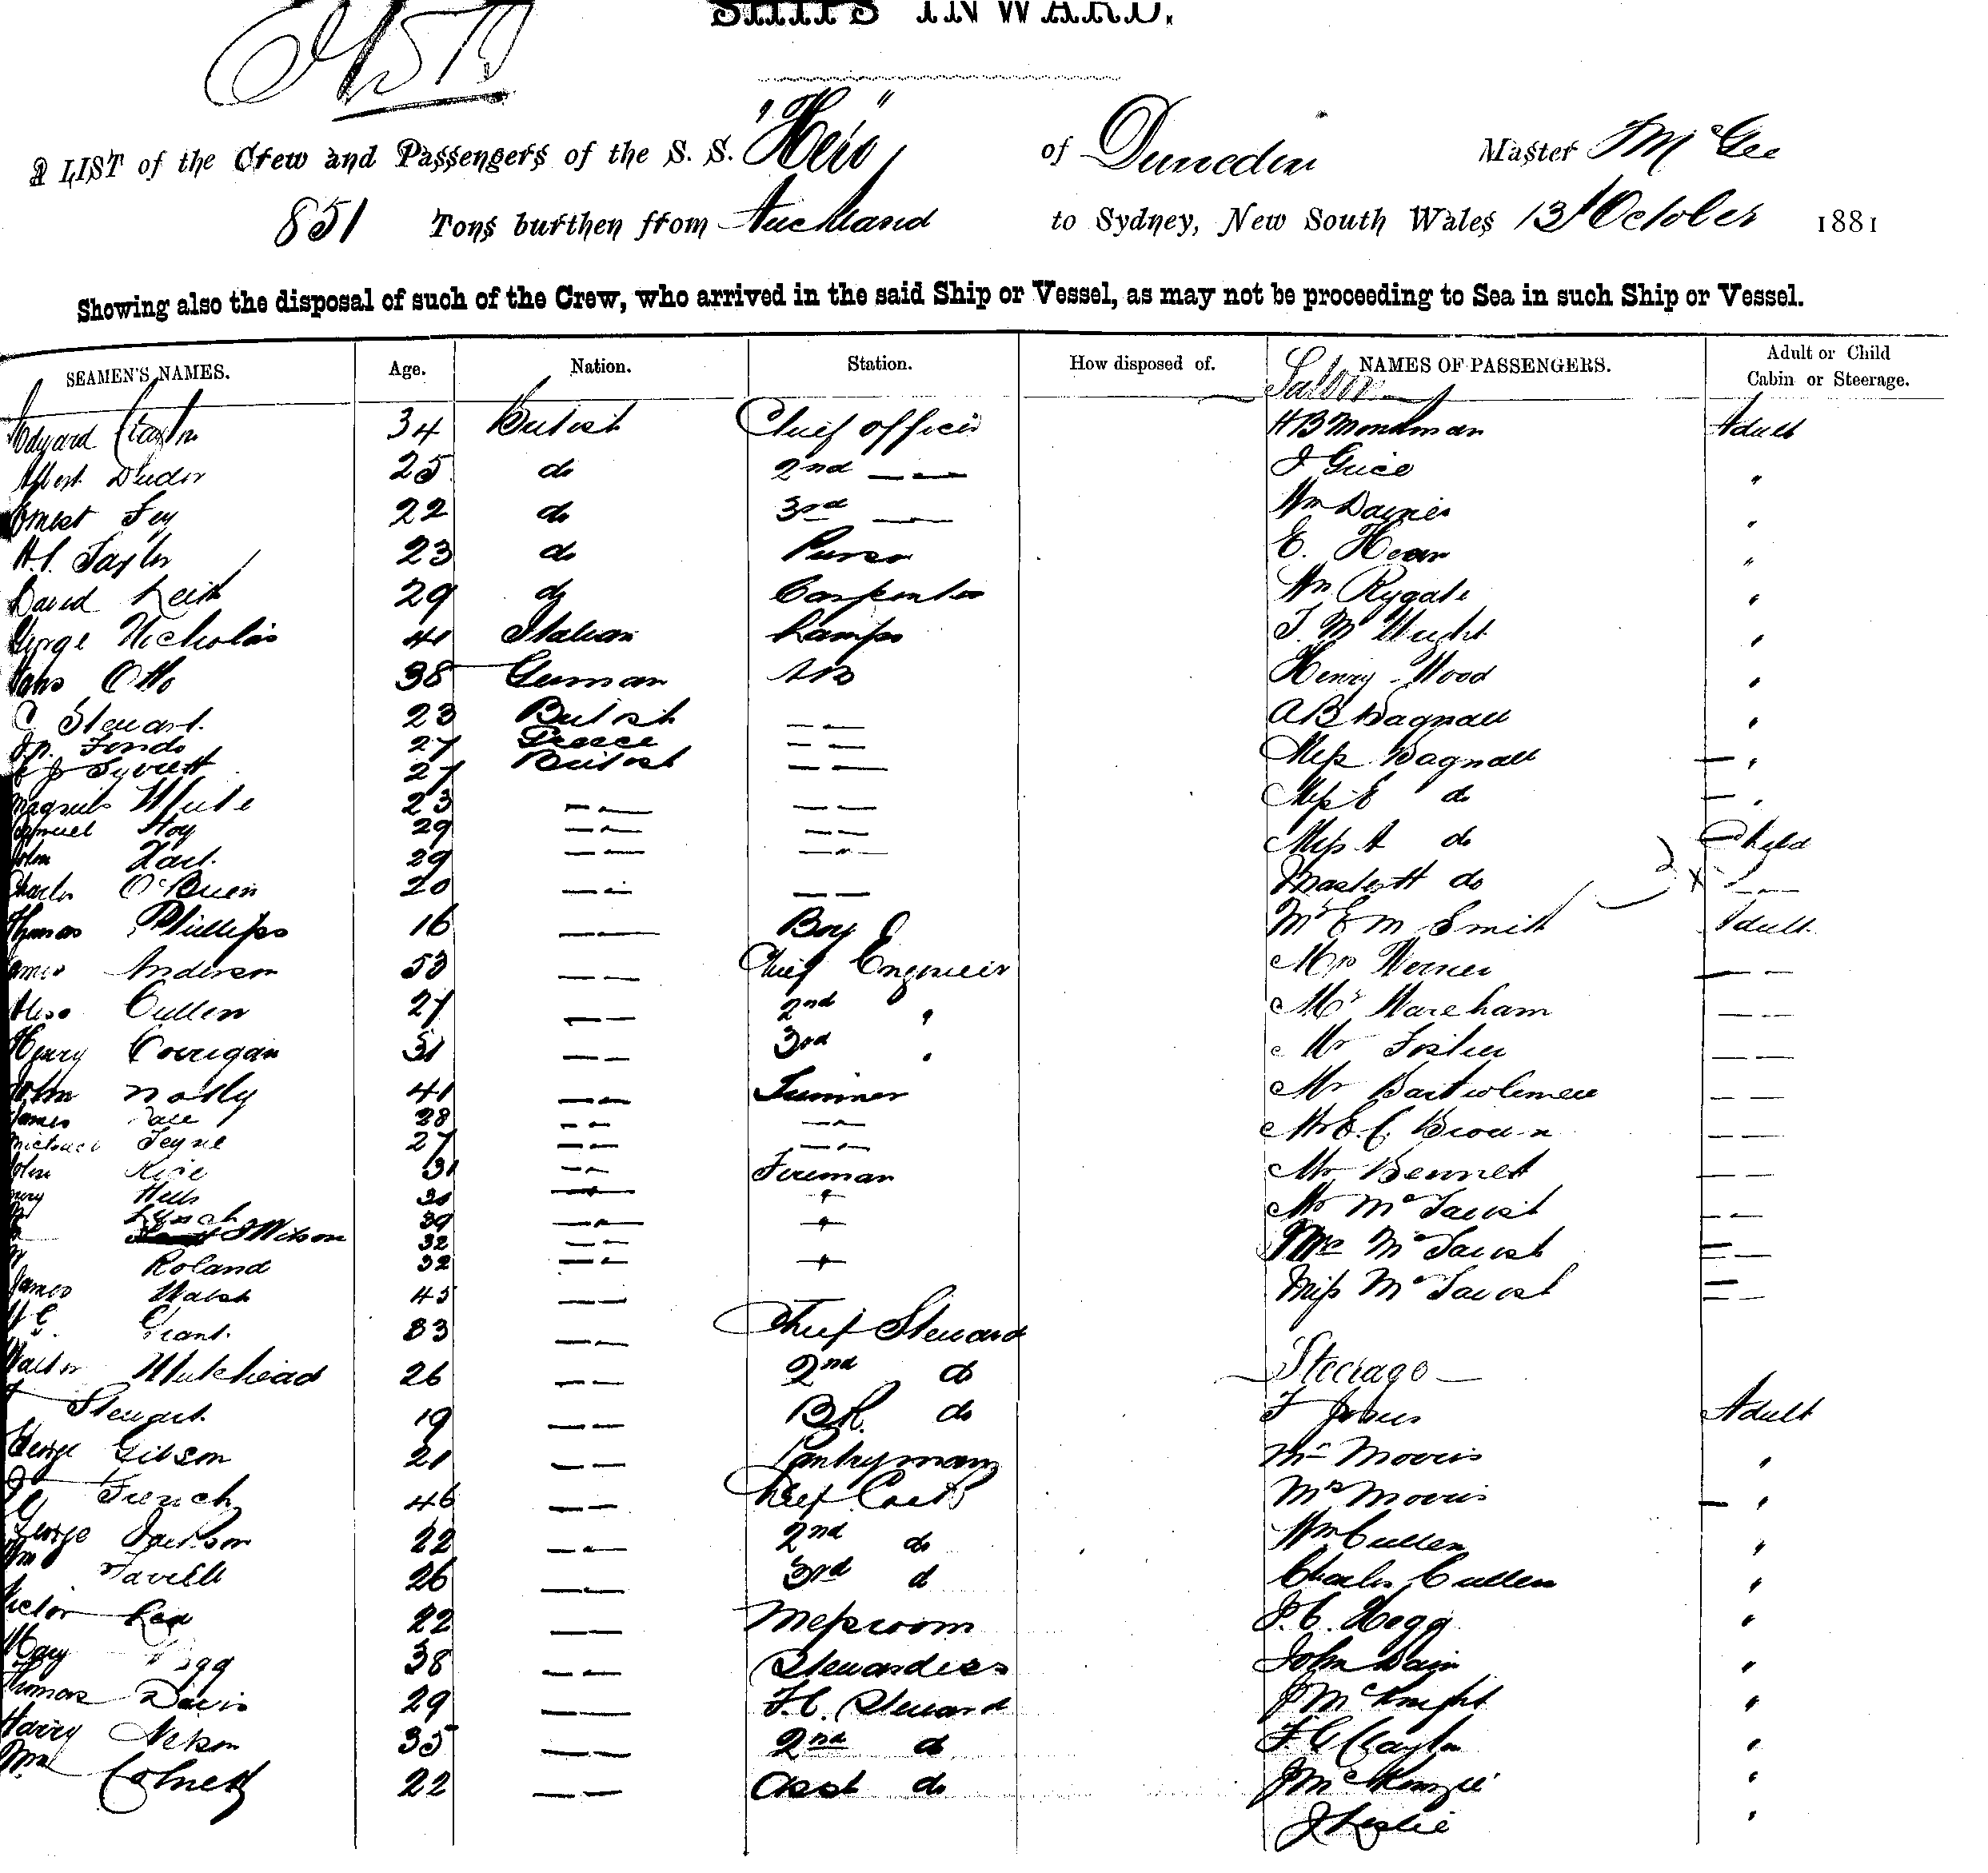 SHIPS INWARD.
A LIST of the Crew and Passengers of the S. S. "Hero" of Dunedin Master T McGee
851 Tons burthen from Auckland to Sydney, New South Wales 13th October 1881
Showing also the disposal of such of the Crew, who arrived in the said Ship or Vessel, as may not be proceeding to Sea in such Ship or Vessel.
SEAMEN'S NAMES. Age. Nation. Station. How disposed of. NAMES OF PASSENGERS. Adult or Child Cabin or Steerage.
Saloon
34 British Chief officer H B Monkman Adult
Albert 25 do 2nd — — J Grice "
Ernest Fey 22 do 3rd — Wm Daynes "
H. S. Taylor 23 do Purser E. Hoar "
David Keith 29 do Carpenter Wm Rygate "
George Nicholas 41 Italian Lamps T. M Wright "
Hans Otto 38 German AB Henry Wood "
C Stewart 23 British — — A B Bagnall "
27 Greece — — Miss Bagnall — "
27 British — — Miss E do — "
Magnus White 23 — — — —
Samuel Hoy 29 — — — — Miss A do Child
John Hart 29 — — — —
Charles O'Brien 20 — — — — Master H do — —
Thomas Phillips 16 — — Boy Mr E M Smith Adult
James Anderson 53 — — Chief Engineer Mrs Werner — —
Cullen 27 — — 2nd " Mr Wareham — —
Henry Corrigan 31 — — 3rd " Mr — —
John 41 — — Trimmer Mr Bartholemew — —
James 28 — — — — Mr E. C. Brown — —
Michael 27 — — — —
John Rice 31 — — Fireman Mr Bennet — —
30 — — " Mr McTavish — —
Lynch 39 — — "
Wilson 32 — — Mrs McTavish — —
Roland 32 — — "
James Walsh 45 — — Miss McTavish — —
Grant 33 — — Chief Steward
Walter Muirhead 26 — — 2nd do Steerage
Stewart 19 — — B.R. do F Jones Adult
George Gibson 21 — — Pantryman Mr Morris "
French 46 — — Chief Cook Mrs Morris — "
George Jackson 22 — — 2nd do Wm Cullen "
Wm 26 — — 3rd do Charles Cullen "
Victor 22 — — Messroom J. C. Hogg "
Mary 38 — — Stewardess John Dain "
Thomas Davis 29 — — F.C. Steward J McKnight "
Harry Nelson 35 — — 2nd do F C Clayton "
Wm 22 — — Asst do J McKenzie "
J Leslie "